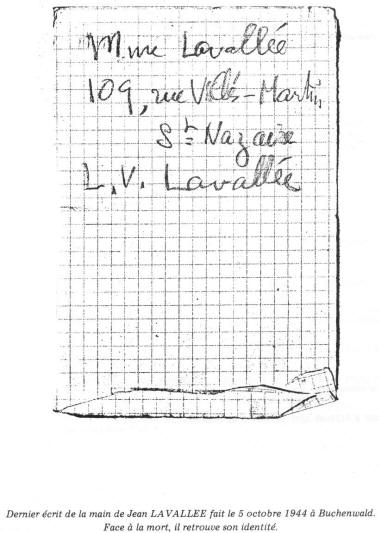 Mme Lavallée
109, rue Villés-Martin
St Nazaire
L.V. Lavallée
Dernier écrit de la main de Jean LAVALLEE fait le 5 octobre 1944 à Buchenwald.
Face à la mort, il retrouve son identité.